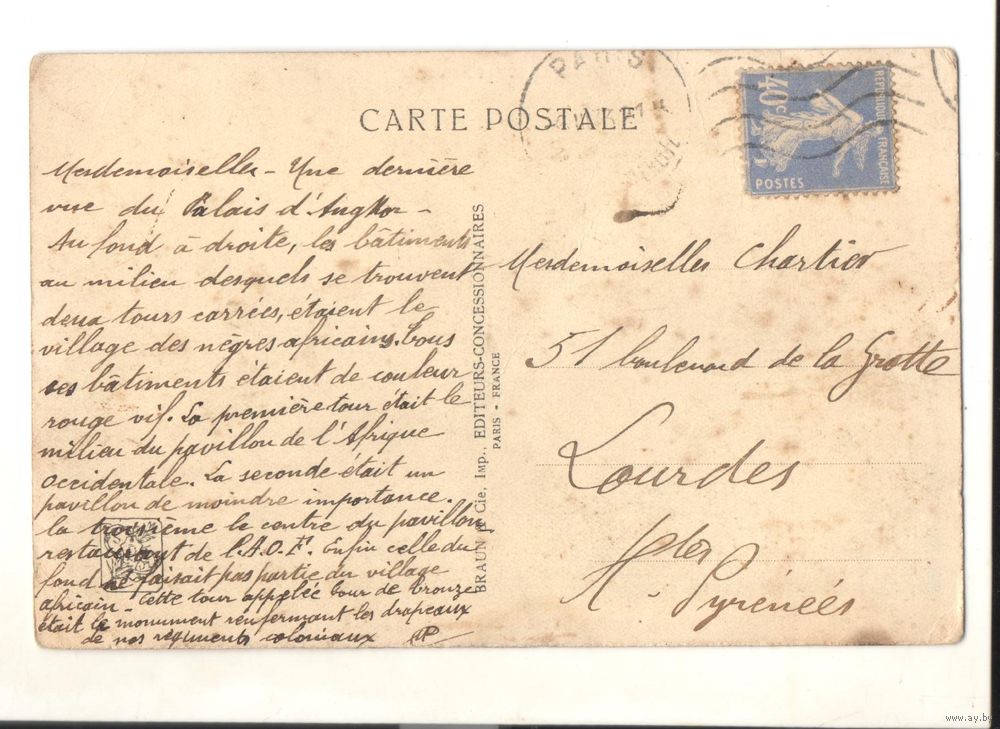 CARTE POSTALE
PARIS
REPUBLIQUE FRANÇAISE
40c
POSTES
Mesdemoiselles - Une dernière
vue du Palais d'Angkor -
Au fond à droite, les bâtiments
au milieu desquels se trouvent
deux tours carrées, étaient le
village des nègres africains. Tous
ces bâtiments étaient de couleur
rouge vif. La première tour était le
milieu du pavillon de l'Afrique
occidentale. La seconde était un
pavillon de moindre importance.
la troisième le centre du pavillon
restaurant de l'A.O.F. Enfin celle du
fond ne faisait pas partie du village
africain - Cette tour appelée tour de bronze
était le monument renfermant les drapeaux
de nos régiments coloniaux
BRAUN et Cie, IMP., EDITEURS-CONCESSIONNAIRES
PARIS - FRANCE
Mesdemoiselles Chartier
51 boulevard de la Grotte
Lourdes
Htes
- Pyrénées
www.ay.by